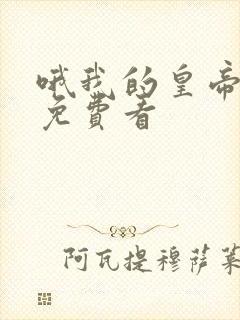 哦我的皇帝
免費看
阿瓦提穆萨莱